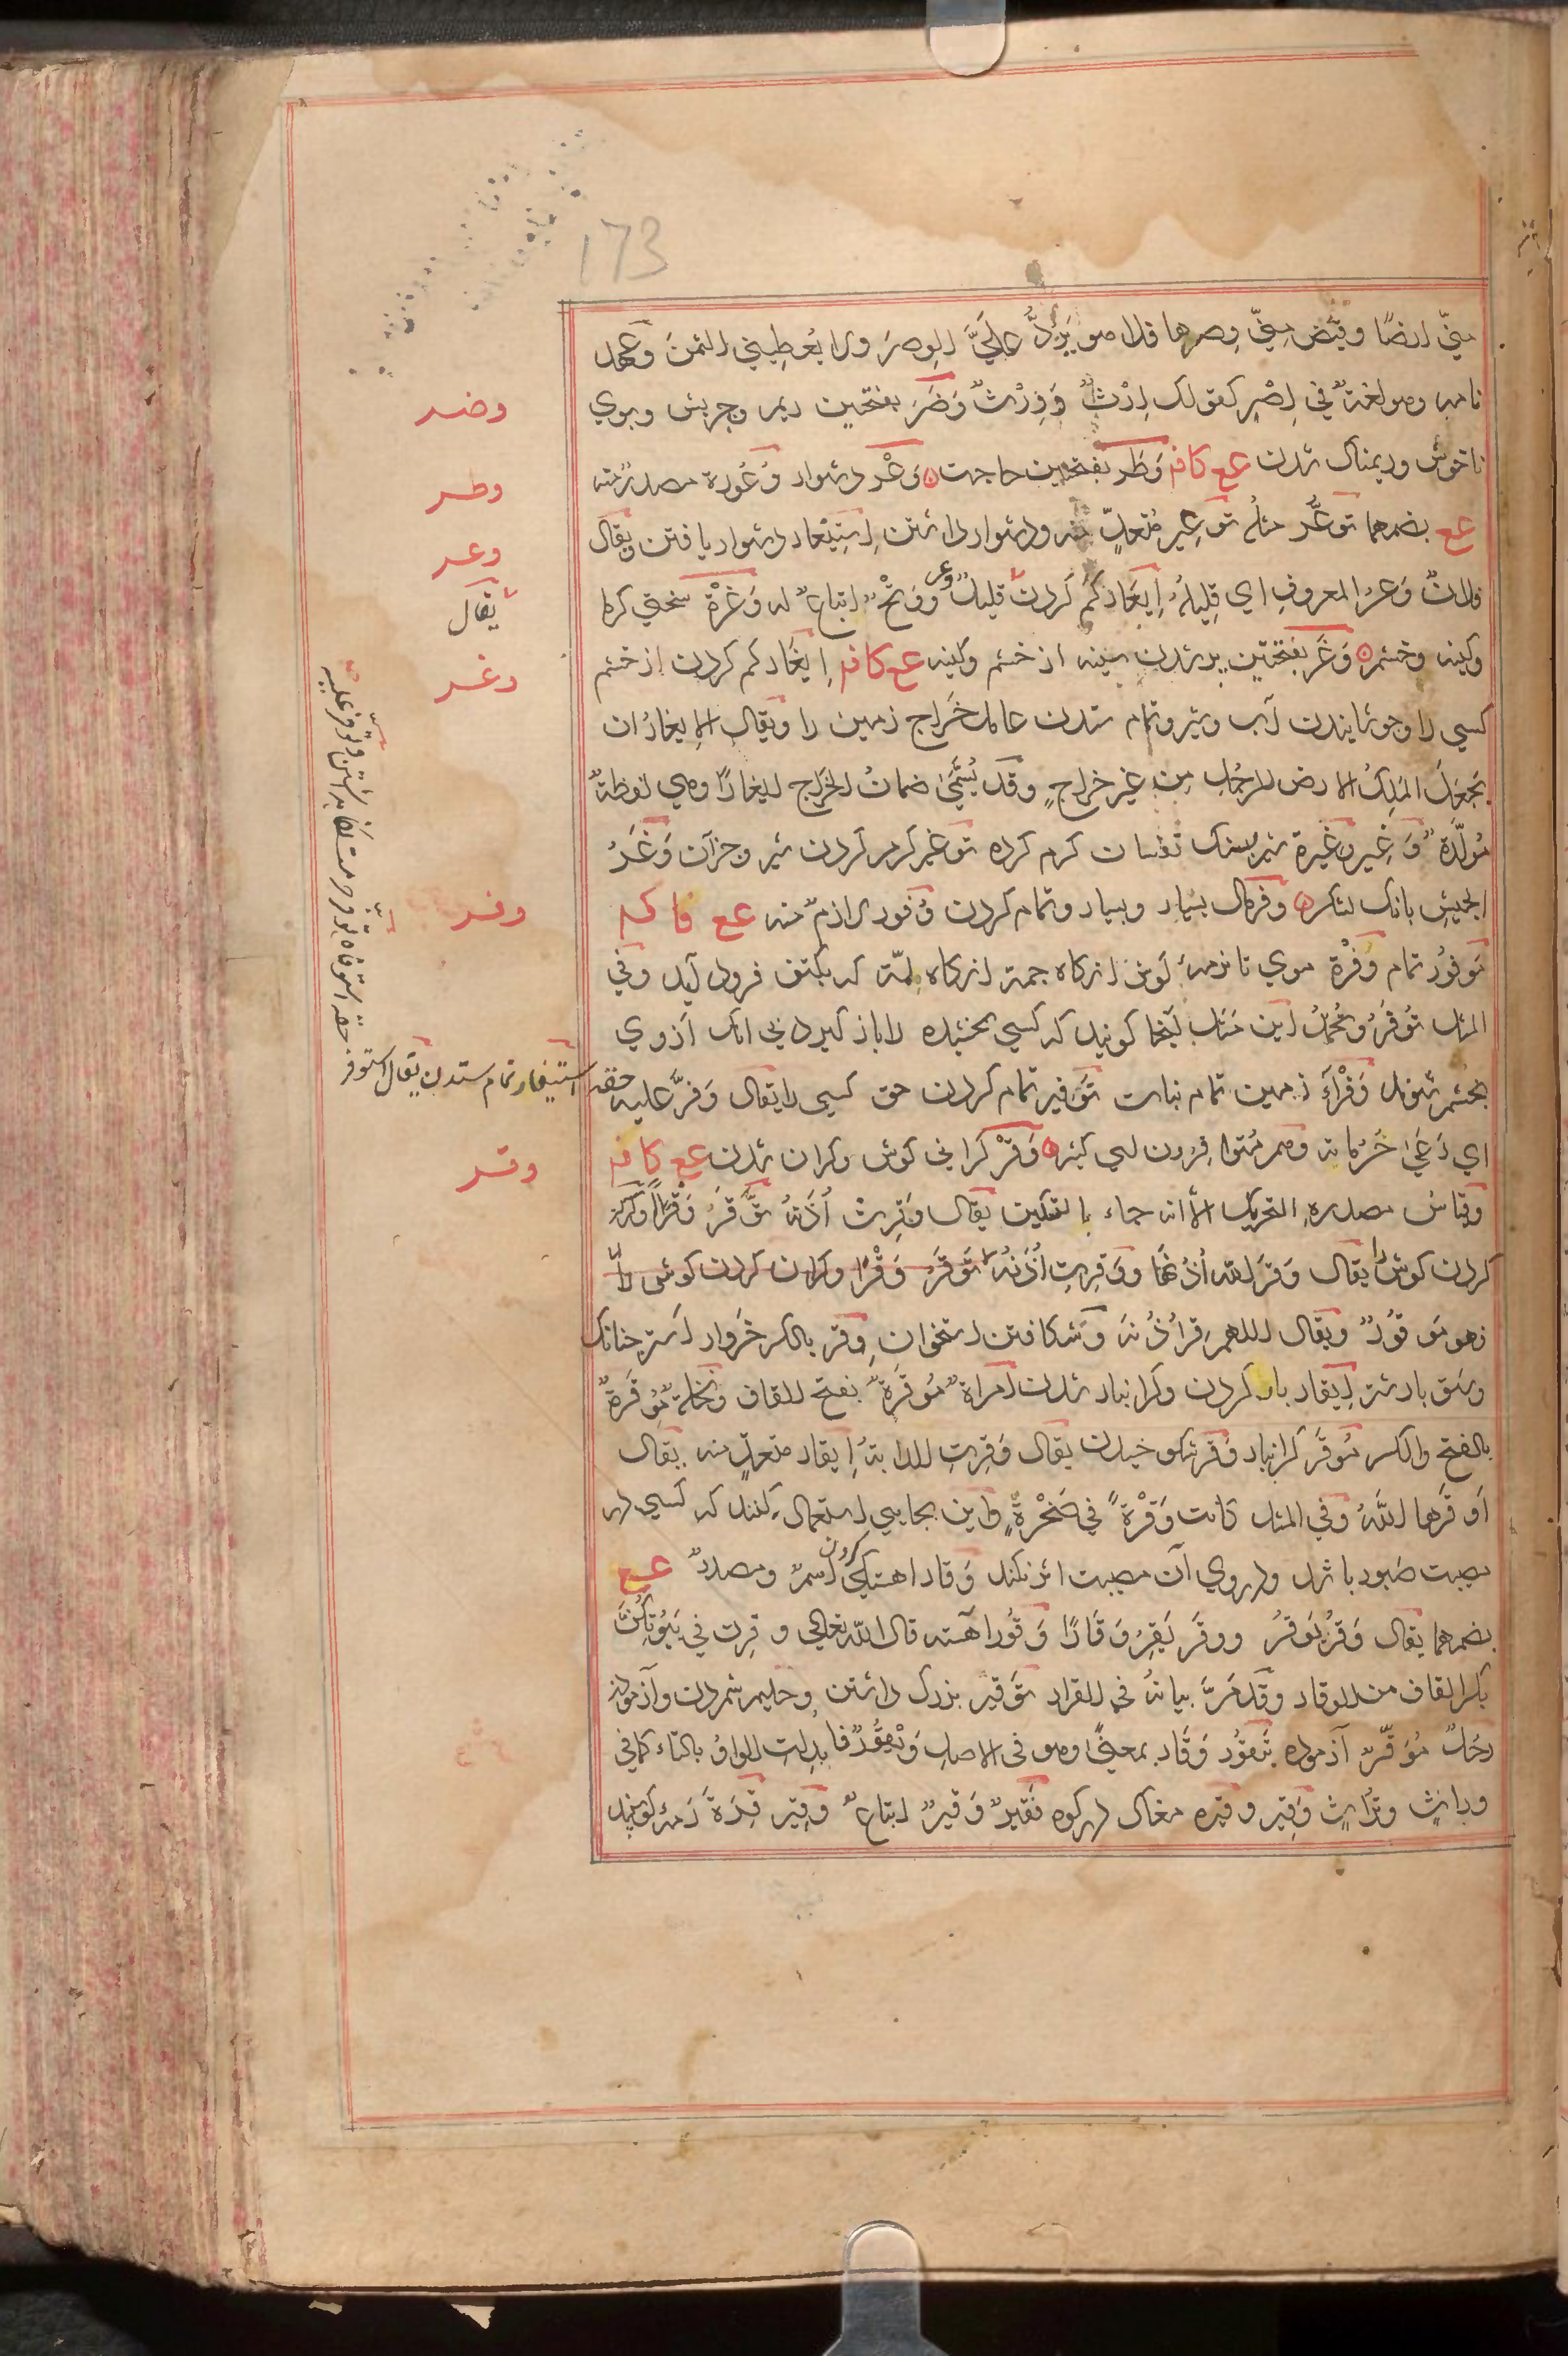 173
منّي ارضًا وقبض منّي وصرها فلا هو يَرُدُّ عَلَيَّ الوِصرَ ولا يُعطِيني الثمنَ وعهد
نامه وهو لغةٌ في اِصْرٍ كقولك اِرْثٌ وَوِرْثٌ وَضَرَ بفتحتين ريم وچربش وبوي
ناخوش وريمناك شدن عع كافم وَطَر بفتحتين حاجت وَعْر دشوار وُعُورة مصدرٌ منه
عع بضمهما توعُّر مثلُه توعِير مُتعدٍّ منه ودشوار داشتن اِستِيعار دشوار يافتن ويقال
فلانٌ وَعرُ المعروفِ اي قِليلُهُ اِيعَار كم كردن قليلٌ وعر ووَتْحٌ اتباعٌ له وَغْرَة سختي گرما
وكينه وخشم وَغَر بفتحتين پر شدن سينه از خشم وكينه عع كافم اِيغَار كم كردن از خشم
كسي را وجوشانيدن آب وشير وتمام ستدن عامل خَراج زمين را ويقال الايغارُ ان
يجعل المَلِكُ الارض للرجُلِ مِن غير خراجٍ وقد يُسَمَّى ضمانُ الخَراج ايغارًا وهي لفظةٌ
مُولَّدةٌ وَغِير وغِيرة شير بسنگ تفسان گرم كرده توغير گرم كردن شير وجزآن وَغَرُ
الجيشِ بانگ لشكر وفر مال بسيار وبسيار وتمام كردن وُفور لازمٌ منه عع فا كم
مَوفُور تمام وَفْرَة موي تا نرمهٔ گوش انگاه جمة انگاه لمّة كه بكتف فرود آيد وفي
المثل تُوفَرُ وتُحْمَدُ اين مثل آنجا گويند كه كسي بخشيده را باز گيرد بي انك ازوي
بخشم شوند وَفْرَاءَ زمين تمام نبات تَوفير تمام كردن حق كسي را يقال وَفَّرَ عليه حقه
استيفار تمام ستدن يقال استوفر
حقه استوفاه توفر حرمت نگاه داشتن وتوفر عليه
اي رَعَى حُرُماتِه وهم مُتوافِرون اي كثير وَقْر گراني گوش وگران شدن عع كافم
وقياسُ مصدره التحريك الا انه جاء بالتسكين يقال وَقِرَت اُذُنُه تَوْقَرُ وَقْرًا وگران
كردن گوش را يقال وَقَرَ اللهُ اُذُنَهَا ووَقِرَتِ اُذُنُه تَوقَرُ وَقْرًا وگران كردن گوش را
فهو مَوقُورٌ ويقال اللهم قِر اُذُنَه وشكافتن استخوان وِقر بالكسر خَروار استر چنانك
وسق بار شتر اِيقار بار كردن وگرانبار شدن اِمراةٌ مُوقَرَةٌ بفتح القاف ونخلةٌ مُوقِرةٌ
بالفتح والكسر مُوقَّر گرانبار وَقر شكوخيدن يقال وَقِرَتِ الدابةُ اِيقار متعدٍّ منه يقال
اَوقَرها اللّهُ وفي المثل كانت وَقْرَةً في صَخْرةٍ واين بجايي استعمال كنند كه كسي در
مصيبت صَبور باشد ودر روي آن مصيبت اثر نكند وَقار آهستگي كردن اسمٌ ومصدرٌ عع
بضمهما يقال وَقُرَ يَوقُرُ ووقَر يَقِرُ وَقَارًا وَقُور آهسته قال الله تعالى وقِرن في بُيُوتِكُنَّ
بكسر القاف من الوقار وقد مَرَّ بيانهُ في القرار تَوقير بزرگ داشتن وحليم شمردن وآزمودن
رَجُلٌ مُوَقَّرٌ آزموده تَيقُور وَقَار بمعنًى وهو في الاصل وَيْقُورٌ فابدِلتِ الواوُ بالتاء كما في
وراثٍ وتُراثٍ وَقِير وقيره مغاك در كوه فَقيرٌ وَقيرٌ اتباعٌ وقِير قِرَةً رمهٔ گوسپند
وضر
وطر
وعر
يقال
وغر
وفر
وقر